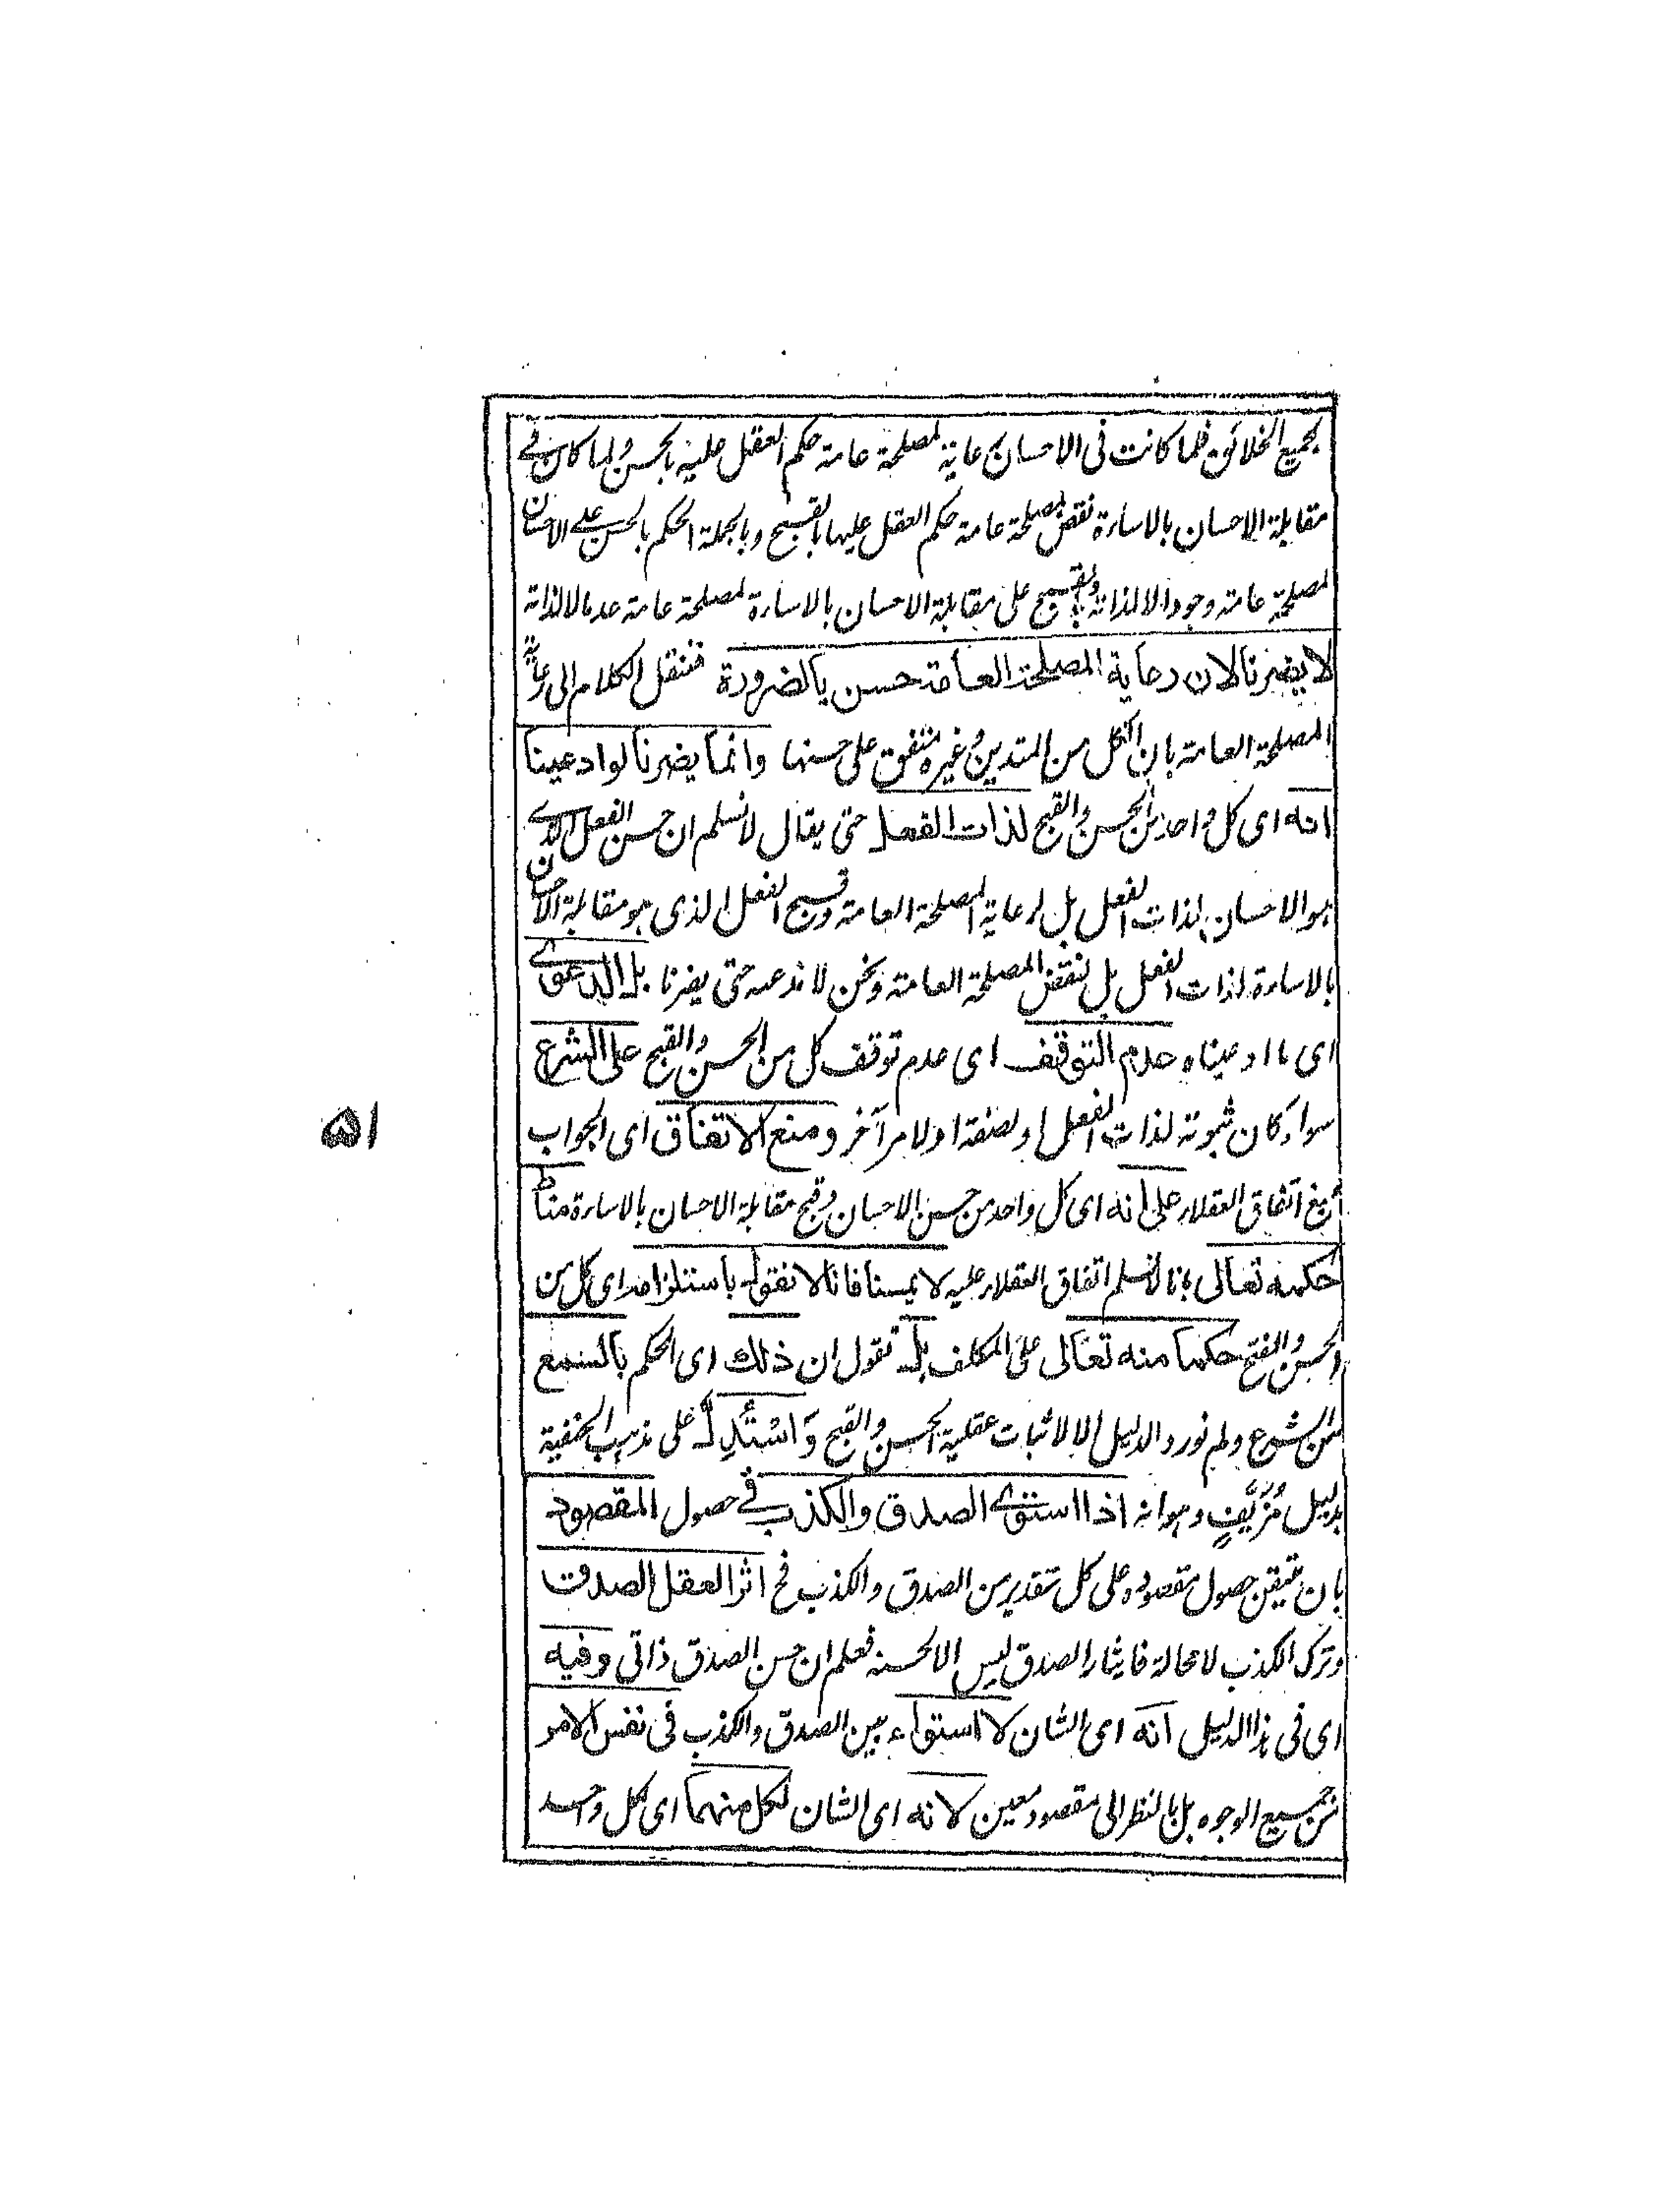 لجميع الخلائق فلما كانت فى الاحسان رعاية لمصلحة عامة حكم العقل عليه بالحسن ولما كان فى
مقابلة الاحسان بالاساءة نقض لمصلحة عامة حكم العقل عليها بالقبح وبالجملة الحكم بالحسن على الاحسان
لمصلحة عامة وجودا لا لذاته وبالقبح على مقابلة الاحسان بالاساءة لمصلحة عامة عدما لا لذاته
لا يضرنا لان رعاية المصلحة العامة حسن بالضرورة فننقل الكلام الى رعاية
المصلحة العامة بان الكل من المتدين وغيره متفق على حسنها وانما يضرنا لو ادعينا
انه اى كل واحد من الحسن والقبح لذات الفعل حتى يقال لا نسلم ان حسن الفعل الذى
هو الاحسان لذات الفعل بل لرعاية المصلحة العامة وقبح الفعل الذى هو مقابلة الاحسان
بالاساءة لذات الفعل بل لنقض المصلحة العامة ونحن لا ندعيه حتى يضرنا بل الدعوى
اى ما ادعيناه عدم التوقف اى عدم توقف كل من الحسن والقبح على الشرع
سواء كان ثبوته لذات الفعل او لصفة او لامر آخر ومنع الاتفاق اى الجواب
بمنع اتفاق العقلاء على انه اى كل واحد من حسن الاحسان وقبح مقابلة الاحسان بالاساءة مناط
حكمه تعالى بانا لا نسلم اتفاق العقلاء عليه لا يمسنا فانا لا نقول باستلزامه اى كل من
الحسن والقبح حكما منه تعالى على المكلف بل نقول ان ذلك اى الحكم بالسمع
من الشرع ولم نورد الدليل الا لاثبات عقلية الحسن والقبح وَاسْتُدِلَّ على مذهب الحنفية
بدليل مُزَيَّفٍ وهو انه اذا استوى الصدق والكذب فى حصول المقصود
بان تيقن حصول مقصوده على كل تقدير من الصدق والكذب فح اثر العقل الصدق
وترك الكذب لا محالة فايثار الصدق ليس الا لحسنه فعلم ان حسن الصدق ذاتى وفيه
اى فى هذا الدليل انه اى الشان لا استواء بين الصدق والكذب فى نفس الامر
من جميع الوجوه بل بالنظر الى مقصود معين لانه اى الشان لكل منهما اى لكل واحد
۵۱